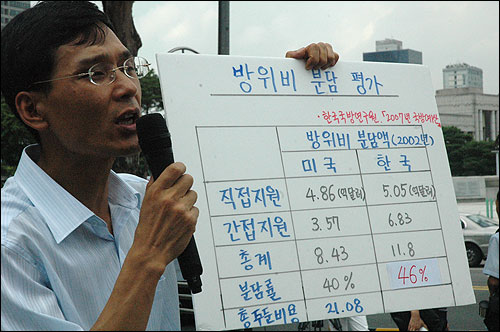 방위비 분담 평가
· 한국국방연구원, 「2007년 국방예산」
방위비 분담액(2002년)
미국 한국
직접지원 4.86(억달러) 5.05(억달러)
간접지원 3.57 6.83
총계 8.43 11.8
분담률 40% 46%
총주둔비용 21.08